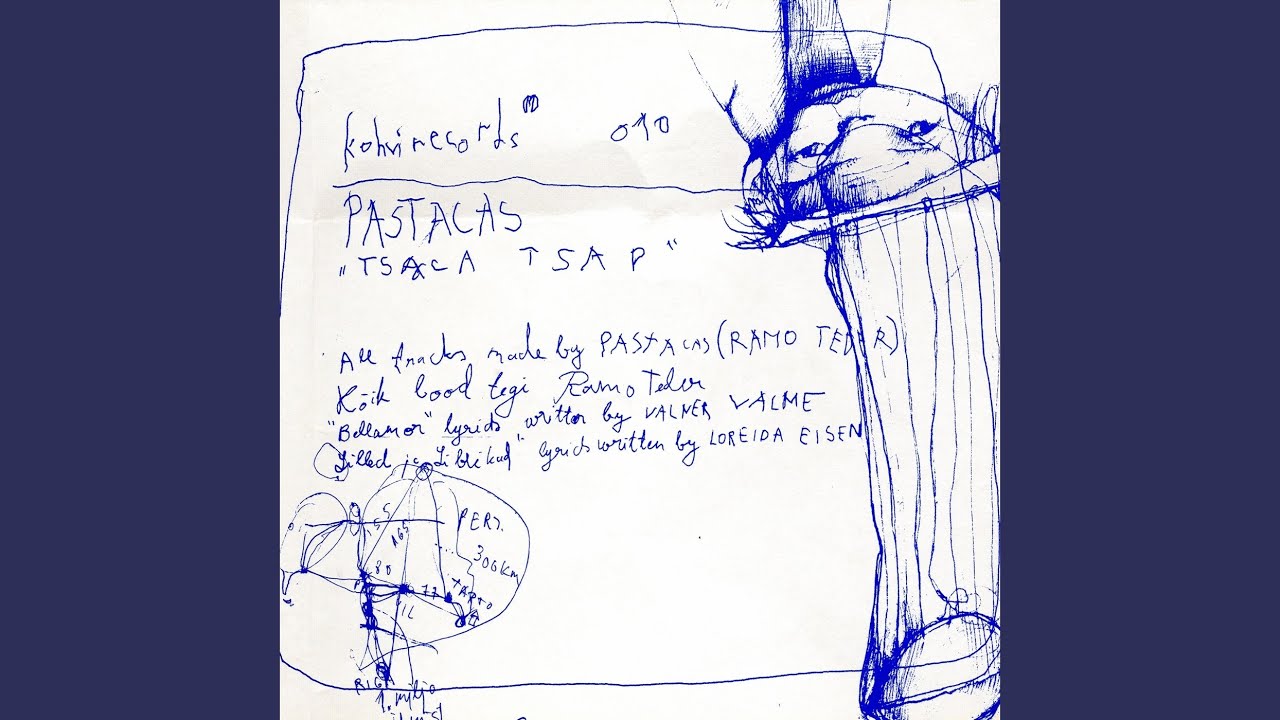 kohvirecords 010
PASTACAS
"TSACA TSAP"
All tracks made by PASTACAS (RAMO TEDER)
Kõik lood tegi Ramo Teder
"Bellamor" lyrics written by VALNER VALME
"Lilled ja Liblikad" lyrics written by LOREIDA EISEN
55 165 PERS.
300KM
80
77 TARTO
VIL
RIGA